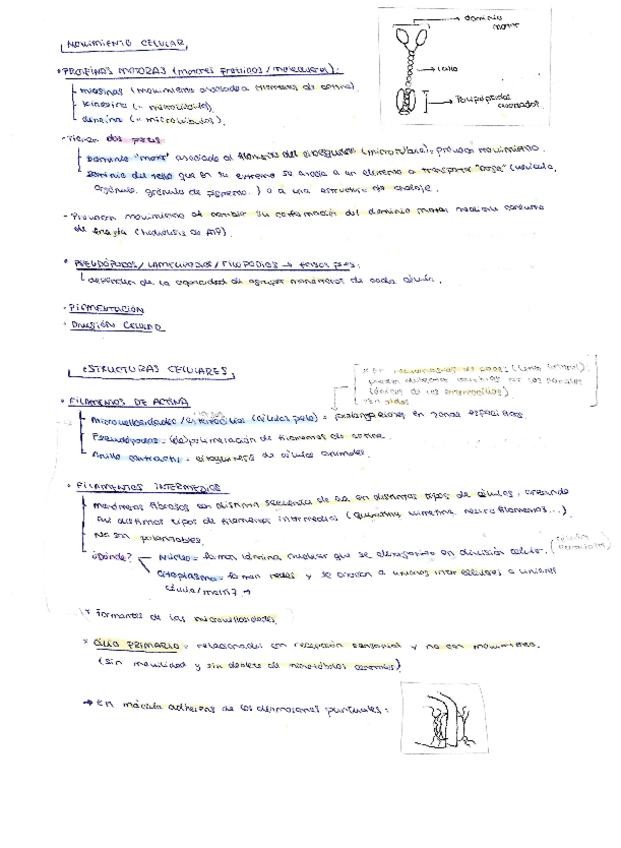 MOVIMIENTO CELULAR
dominio motor
tallo
• PROTEÍNAS MOTORAS (motores proteicos/moleculares):
miosinas (movimiento asociado a filamentos de actina)
kinesina (= microtúbulos)
dineína (= microtúbulos).
- Tienen dos partes
Dominio "motor" asociado al filamento del citoesqueleto (microtúbulo), provocan movimiento.
Dominio del tallo que en su extremo se asocia a un elemento a transportar "carga" (vesícula,
orgánulo, gránulo de pigmento..) o a una estructura de anclaje.
- Provocan movimiento al cambiar su conformación del dominio motor mediante consumo
de energía (hidrólisis de ATP).
• PSEUDÓPODOS/LAMELIPODIOS/FILOPODIOS →
dependen de la capacidad de agregar monómeros de cada célula.
• PIGMENTACIÓN
• DIVISIÓN CELULAR
ESTRUCTURAS CELULARES
• FILAMENTOS DE ACTINA
Microvellosidades/estereocilios (células pelo) = prolongaciones en zonas específicas.
Pseudópodos = (de)polimerización de filamentos de actina.
Anillo contráctil = citoquinesis de células animales.
• FILAMENTOS INTERMEDIOS
monómeros fibrosos con distinta secuencia de aa en distintos tipos de células, creando
así distintos tipos de filamentos intermedios (queratina, vimentina, neurofilamentos...)
No son polarizables.
¿Dónde?
Núcleo = forman lámina nuclear que se desorganiza en división celular.
Citoplasma = forman redes y se asocian a uniones intercelulares o uniones
célula/matriz →
Formantes de las microvellosidades
* CILIO PRIMARIO = relacionados con recepción sensorial y no con movimiento.
(sin movilidad y sin doblete de microtúbulos centrales)
→ en mácula adherens de los desmosomas puntuales: